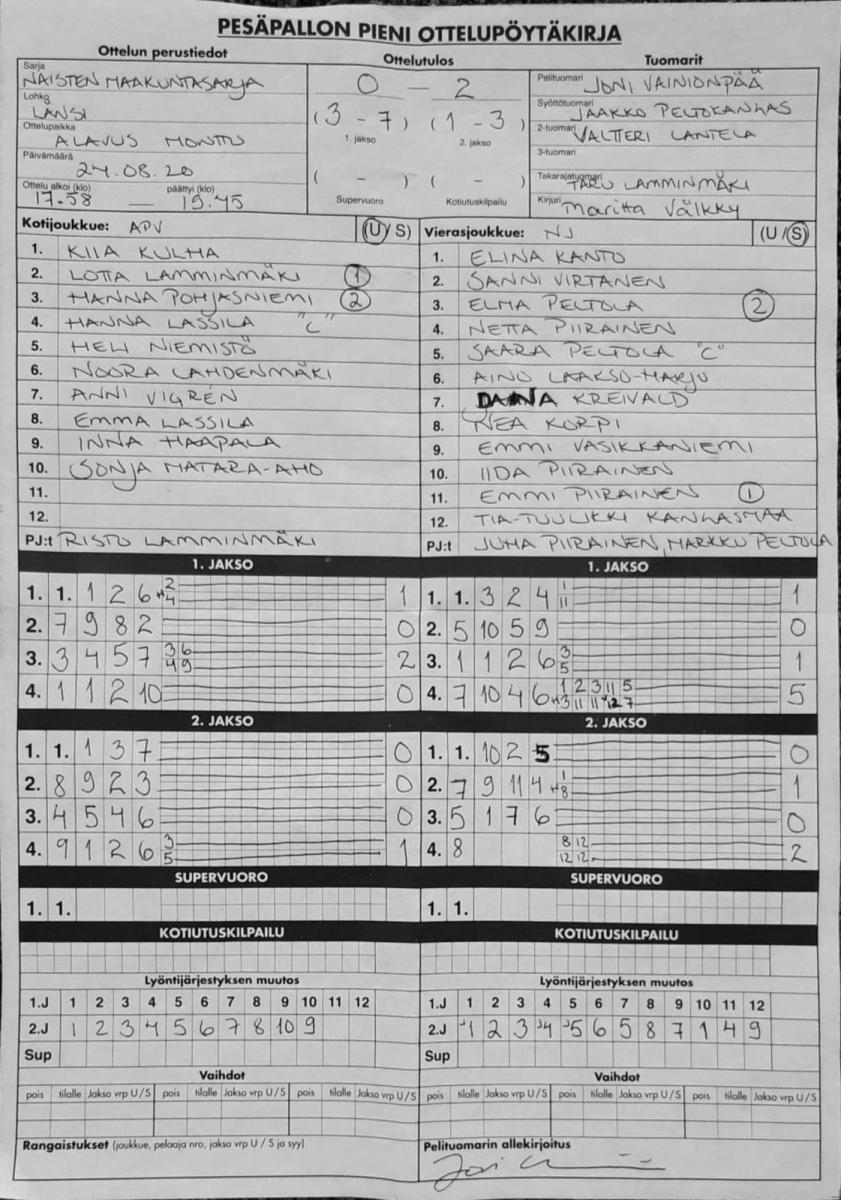 PESÄPALLON PIENI OTTELUPÖYTÄKIRJA
Ottelun perustiedot Ottelutulos Tuomarit
Sarja
NAISTEN MAAKUNTASARJA
Lohko
LÄNSI
Ottelupaikka
ALAVUS MONTTU
Päivämäärä
24.08.20
Ottelu alkoi (klo) päättyi (klo)
17.58 — 19.45
0 – 2
(3 – 7) (1 – 3)
1. jakso 2. jakso
( – ) ( – )
Supervuoro Kotiutuskilpailu
Pelituomari JONI VAINIONPÄÄ
Syöttötuomari JAAKKO PELTOKANGAS
2-tuomari VALTTERI LANTELA
3-tuomari
Takarajatuomari TARU LAMMINMÄKI
Kirjuri Maritta Välkky
Kotijoukkue: APV (U/S)
1. KIIA KULHA
2. LOTTA LAMMINMÄKI 1
3. HANNA POHJASNIEMI 2
4. HANNA LASSILA "C"
5. HELI NIEMISTÖ
6. NOORA LAHDENMÄKI
7. ANNI VIGRÉN
8. EMMA LASSILA
9. INNA HAAPALA
10. SONJA MATARA-AHO
11.
12.
PJ:t RISTO LAMMINMÄKI
Vierasjoukkue: NJ (U/S)
1. ELINA KANTO
2. SANNI VIRTANEN
3. ELMA PELTOLA 2
4. NETTA PIIRAINEN
5. SAARA PELTOLA "C"
6. AINO LAAKSO-HARJU
7. DAANA KREIVALD
8. NEA KORPI
9. EMMI VASIKKANIEMI
10. IIDA PIIRAINEN
11. EMMI PIIRAINEN 1
12. TIA-TUULIKKI KANGASMAA
PJ:t JUHA PIIRAINEN, MARKKU PELTOLA
1. JAKSO
1. 1. 1 2 6 2 4 1
2. 7 9 8 2 0
3. 3 4 5 7 3 6 4 9 2
4. 1 1 2 10 0
1. JAKSO
1. 1. 3 2 4 1 11 1
2. 5 10 5 9 0
3. 1 1 2 6 3 5 1
4. 7 10 4 6 1 2 3 11 5 3 11 11 12 7 5
2. JAKSO
1. 1. 1 3 7 0
2. 8 9 2 3 0
3. 4 5 4 6 0
4. 9 1 2 6 3 5 1
2. JAKSO
1. 1. 10 2 5 0
2. 7 9 11 4 1 8 1
3. 5 1 7 6 0
4. 8 8 12 12 12 2
SUPERVUORO
1. 1.
SUPERVUORO
1. 1.
KOTIUTUSKILPAILU
KOTIUTUSKILPAILU
Lyöntijärjestyksen muutos
1.J 1 2 3 4 5 6 7 8 9 10 11 12
2.J 1 2 3 4 5 6 7 8 10 9
Sup
Lyöntijärjestyksen muutos
1.J 1 2 3 4 5 6 7 8 9 10 11 12
2.J 2 3 6 5 8 7 1 4 9
Sup
Vaihdot
pois tilalle Jakso vrp U/S pois tilalle Jakso vrp U/S pois tilalle Jakso vrp U/S
Vaihdot
pois tilalle Jakso vrp U/S pois tilalle Jakso vrp U/S pois tilalle Jakso vrp U/S
Rangaistukset (joukkue, pelaaja nro, jakso vrp U / S ja syy)
Pelituomarin allekirjoitus